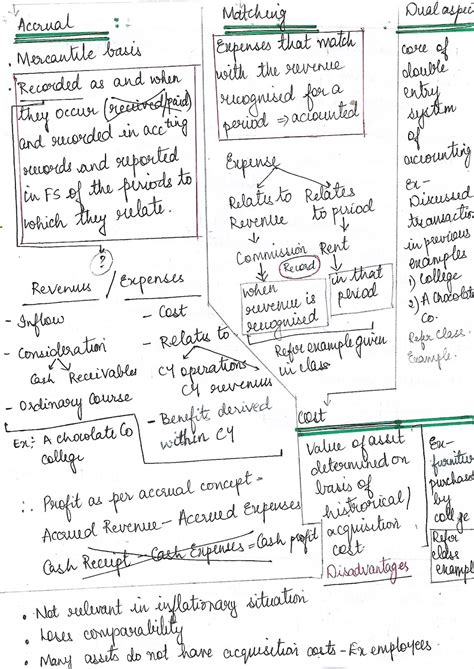 Accrual :
. Mercantile basis
. Recorded as and when
they occur (received/paid)
and recorded in accting
records and reported
in FS of the periods to
which they relate.
?
Revenues / Expenses
- Inflow
- Consideration
Cash Receivables
- Ordinary Course
Ex:- A chocolate Co
college
- Cost
- Relates to
CY operations
CY revenues
- Benefits derived
within CY
∴ Profit as per accrual concept -
Accrued Revenue - Accrued Expenses
Cash Receipt - Cash Expenses = Cash profit
Matching
Expenses that match
with the revenue
recognised for a
period ⇒ accounted
Expense
Relates to Relates
Revenue to period
Commission Rent
Record
when
revenue is
recognised
in that
period
Refer example given
in class.
Dual aspec
core of
double
entry
system
of
accounting
Ex-
Discussed
transaction
in previous
examples
1) College
2) A chocolate
Co.
Refer Class
Example.
Cost
Value of asset
determined on
basis of
historical/
acquisition
cost
Disadvantages
Ex-
furniture
purchased
by
college
Refer
class
example
• Not relevant in inflationary situation
• Loses comparability
• Many assets do not have acquisition costs - Ex employees.